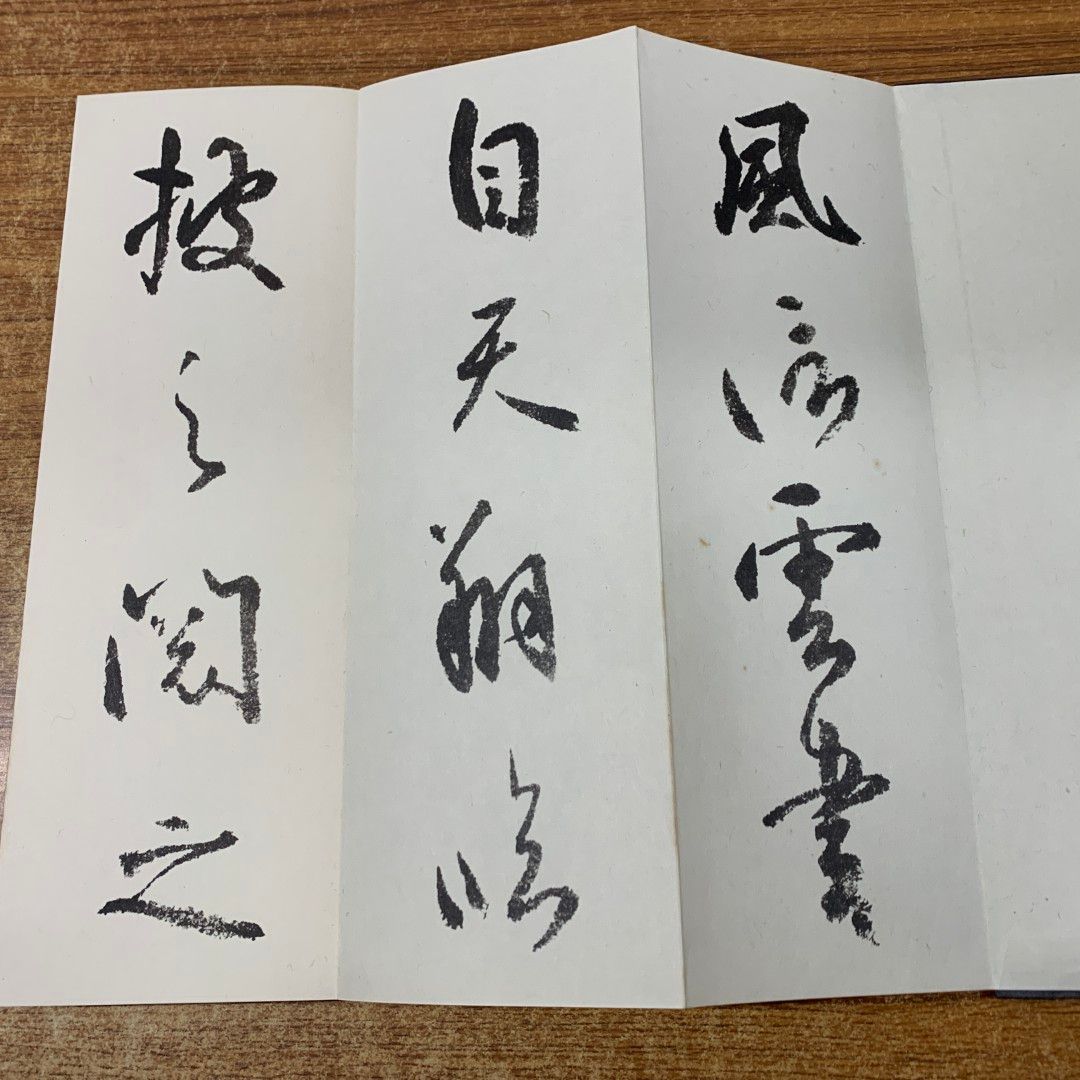 風信雲書
自天翔臨
披之閲之